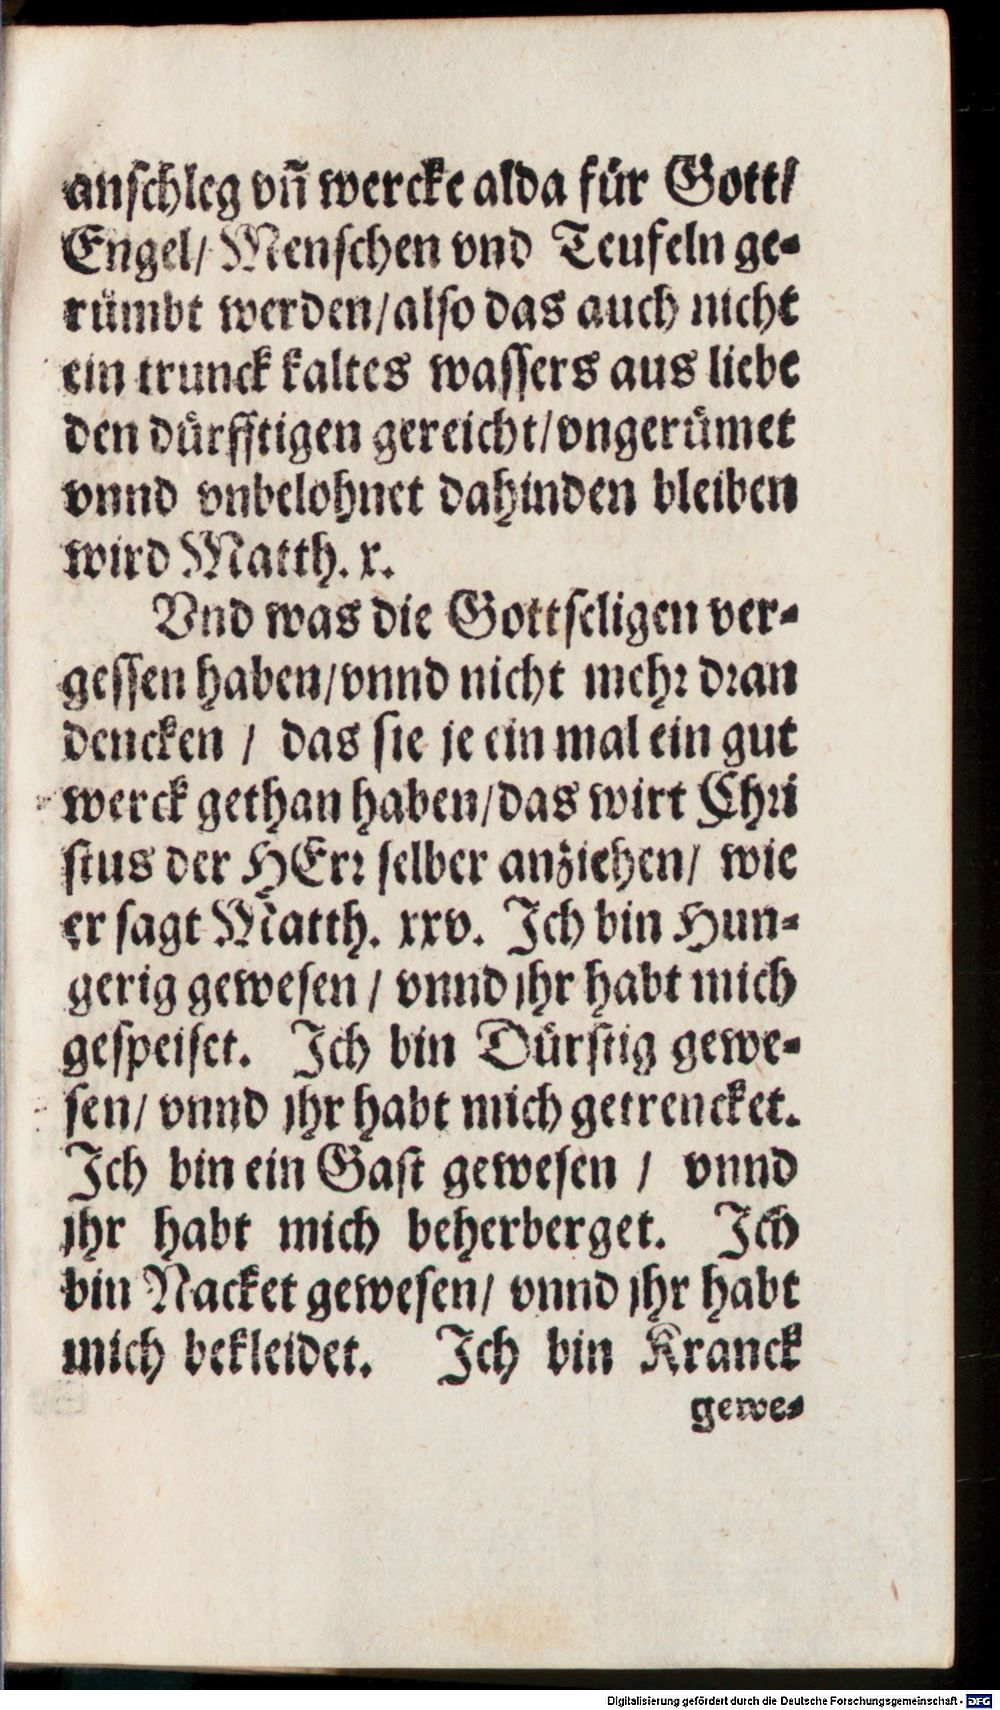 anschleg vñ wercke alda für Gott/
Engel/ Menschen vnd Teufeln ge-
rümbt werden/also das auch nicht
ein trunck kaltes wassers aus liebe
den dürfftigen gereicht/vngerümet
vnnd vnbelohnet dahinden bleiben
wird Matth. x.
Vnd was die Gottseligen ver-
gessen haben/vnnd nicht mehr dran
dencken / das sie je ein mal ein gut
werck gethan haben/das wirt Chri
stus der HErr selber anziehen/ wie
er sagt Matth. xxv. Ich bin Hun-
gerig gewesen / vnnd jhr habt mich
gespeiset. Ich bin Dürstig gewe-
sen/ vnnd jhr habt mich getrencket.
Ich bin ein Gast gewesen / vnnd
jhr habt mich beherberget. Ich
bin Nacket gewesen/ vnnd jhr habt
mich bekleidet. Ich bin Kranck
gewe-
Digitalisierung gefördert durch die Deutsche Forschungsgemeinschaft - DFG